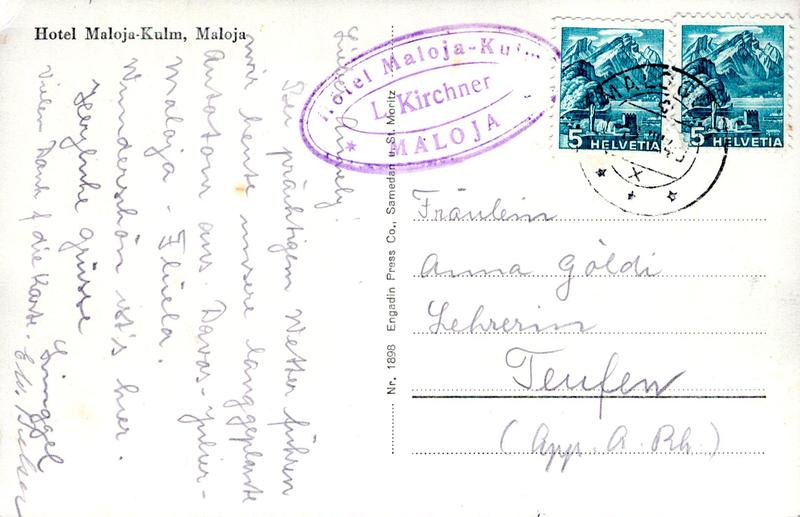 Hotel Maloja-Kulm, Maloja
Hotel Maloja-Kulm
L. Kirchner
* MALOJA
5 HELVETIA
5 HELVETIA
MALOJA
Bei prächtigem Wetter führen
wir heute unsere langgeplante
Autotour aus. Davos-Julier-
Maloja - Flüela.
Wunderschön ist's hier.
Herzliche Grüsse
Vielen Dank f. die Karte.
Nr. 1898 Engadin Press Co., Samedan u. St. Moritz
Fräulein
Anna Göldi
Lehrerin
Teufen
(App. A. Rh.)